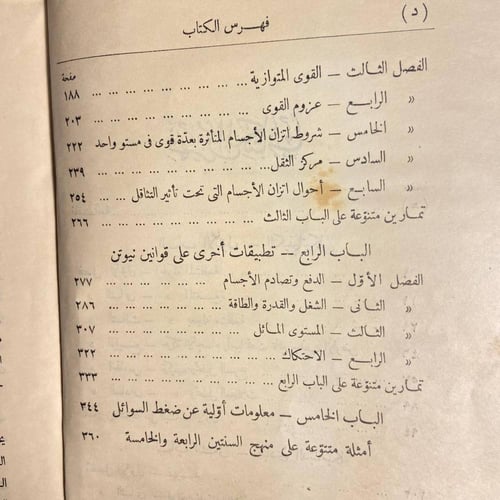 (د)
فهرس الكتاب
صفحة
الفصل الثالث — القوى المتوازية ... ... ... ... ... ... ... ١٨٨
« الرابع — عزوم القوى ... ... ... ... ... ... ... ٢٠٣
« الخامس — شروط اتزان الأجسام المتأثرة بعدّة قوى فى مستو واحد ٢٢٢
« السادس — مركز الثقل ... ... ... ... ... ... ... ٢٣٩
« السابع — أحوال اتزان الأجسام التى تحت تأثير التثاقل ... ... ٢٥٤
تمارين متنوّعة على الباب الثالث ... ... ... ... ... ... ... ٢٦٦
الباب الرابع — تطبيقات أخرى على قوانين نيوتن
الفصل الأوّل — الدفع وتصادم الأجسام ... ... ... ... ... ٢٧٧
« الثانى — الشغل والقدرة والطاقة ... ... ... ... ... ٢٨٦
« الثالث — المستوى المائل ... ... ... ... ... ... ٣٠٧
« الرابع — الاحتكاك ... ... ... ... ... ... ... ٣٢٢
تمارين متنوّعة على الباب الرابع ... ... ... ... ... ... ... ٣٣٣
الباب الخامس — معلومات أوّلية عن ضغط السوائل ٣٤٤
أمثلة متنوّعة على منهج السنتين الرابعة والخامسة ٣٦٠